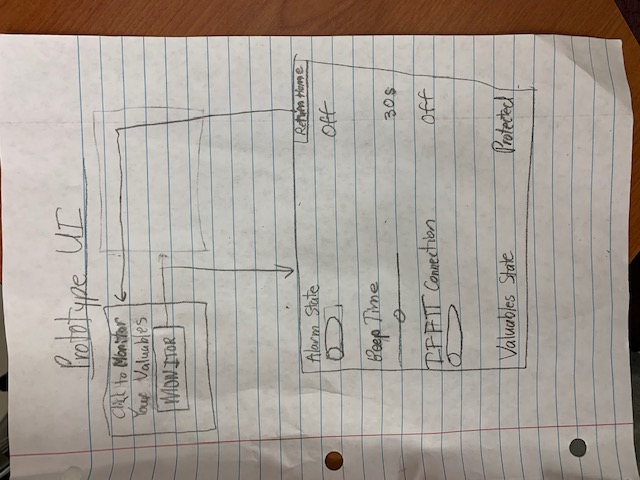 Prototype UI
Click to Monitor
Your Valuables
MONITOR
Return Home
Alarm State
Off
Beep Time
30s
IFFTT Connection
Off
Valuables State
Protected